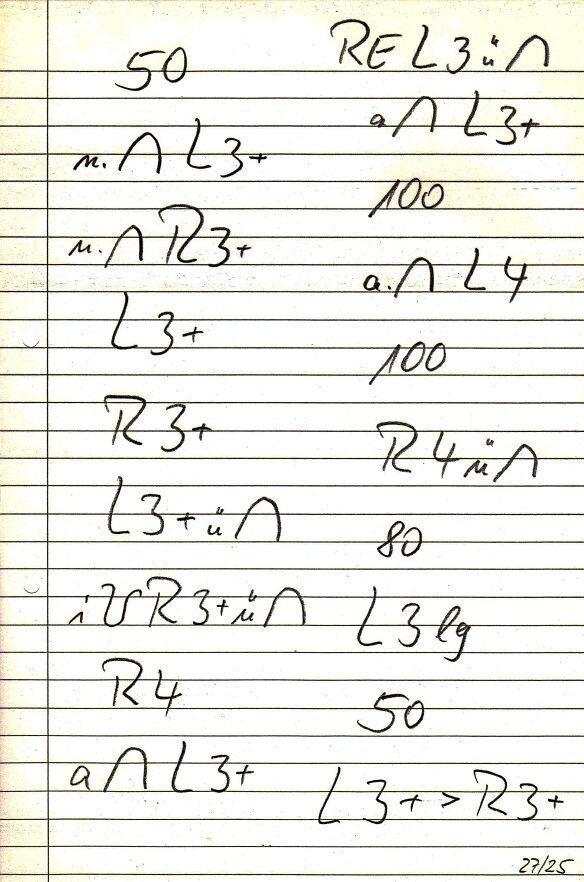 50
n. ∩ L3+
n. ∩ R3+
L3+
R3+
L3+ü∩
i V R3+ü∩
R4
a∩ L3+
REL3ü∩
a∩ L3+
100
a.∩ L4
100
R4ü∩
80
L3lg
50
L3+>R3+
27/25